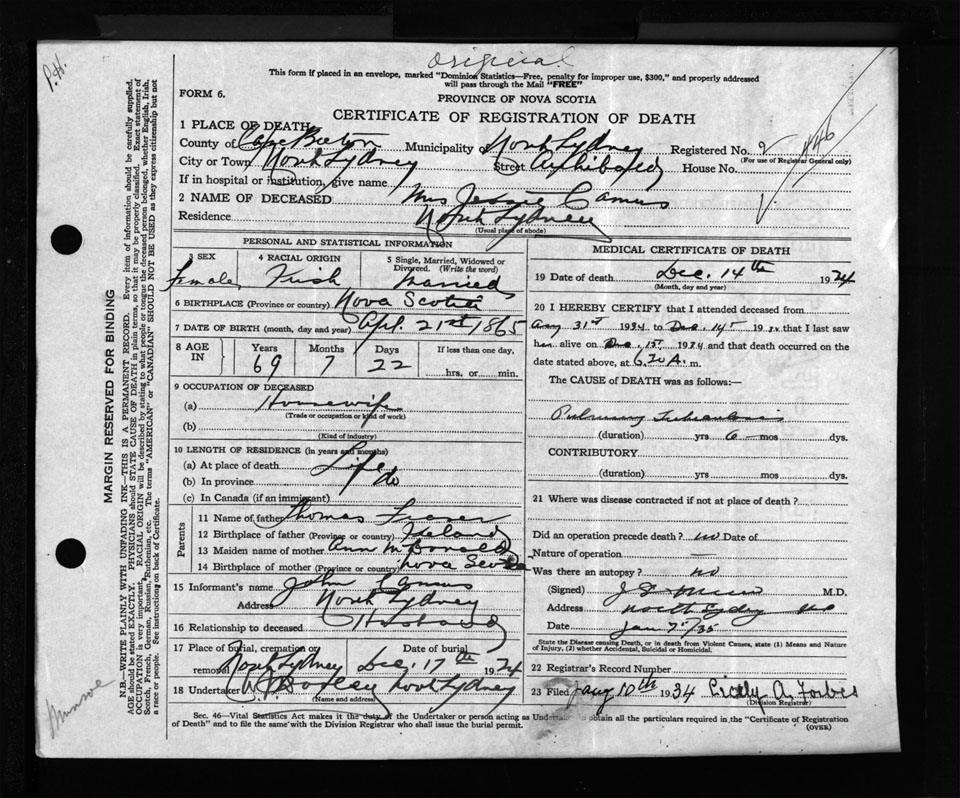 Original
P.H.
This form if placed in an envelope, marked "Dominion Statistics—Free, penalty for improper use, $300," and properly addressed
will pass through the Mail "FREE"
FORM 6.
PROVINCE OF NOVA SCOTIA
CERTIFICATE OF REGISTRATION OF DEATH
1 PLACE OF DEATH
County of Cape Breton Municipality North Sydney Registered No. 2
(For use of Registrar General only)
City or Town North Sydney Street Archibald House No.
If in hospital or institution, give name
2 NAME OF DECEASED Mrs Jessie Camus
Residence North Sydney
(Usual place of abode)
PERSONAL AND STATISTICAL INFORMATION
3 SEX 4 RACIAL ORIGIN 5 Single, Married, Widowed or Divorced. (Write the word)
Female Irish Married
6 BIRTHPLACE (Province or country) Nova Scotia
7 DATE OF BIRTH (month, day and year) Apr. 21st 1865
8 AGE IN Years Months Days If less than one day,
69 7 22 hrs. or min.
9 OCCUPATION OF DECEASED
(a) Housewife
(Trade or occupation or kind of work)
(b)
(Kind of industry)
10 LENGTH OF RESIDENCE (in years and months)
(a) At place of death Life
(b) In province do
(c) In Canada (if an immigrant)
Parents
11 Name of father Thomas Fraser
12 Birthplace of father (Province or country) Ireland
13 Maiden name of mother Ann McDonald
14 Birthplace of mother (Province or country) Nova Scotia
15 Informant's name John Camus
Address North Sydney
16 Relationship to deceased Husband
17 Place of burial, cremation or removal Date of burial
North Sydney Dec. 17th 1934
18 Undertaker North Sydney
(Name and address)
MEDICAL CERTIFICATE OF DEATH
19 Date of death Dec. 14th 1934
(Month, day and year)
20 I HEREBY CERTIFY that I attended deceased from
Aug 31st 1934 to Dec. 14th 19 that I last saw
her alive on Dec. 1st, 1934 and that death occurred on the
date stated above, at 6.20 A. m.
The CAUSE of DEATH was as follows:—
Pulmonary Tuberculosis
(duration) yrs 6 mos dys.
CONTRIBUTORY
(duration) yrs. mos. dys.
21 Where was disease contracted if not at place of death?
Did an operation precede death? no Date of
Nature of operation —
Was there an autopsy? no
(Signed) M.D.
Address North Sydney NS
Date Jan 7/35
State the Disease causing Death, or in death from Violent Causes, state (1) Means and Nature
of Injury, (2) whether Accidental, Suicidal or Homicidal.
22 Registrar's Record Number
23 Filed Jany 10th 1934 Cicely A. Forbes
(Division Registrar)
Sec. 46—Vital Statistics Act makes it the duty of the Undertaker or person acting as Undertaker to obtain all the particulars required in the "Certificate of Registration
of Death" and to file the same with the Division Registrar who shall issue the burial permit.
(OVER)
MARGIN RESERVED FOR BINDING
N.B.—WRITE PLAINLY WITH UNFADING INK—THIS IS A PERMANENT RECORD. Every item of information should be carefully supplied.
AGE should be stated EXACTLY. PHYSICIANS should STATE CAUSE OF DEATH in plain terms, so that it may be properly classified. Exact statement of
OCCUPATION is very important. RACIAL ORIGIN will be described by stating to what people or tongue the deceased person belonged, whether English, Irish,
Scotch, French, German, Russian, Ruthenian, etc. The terms "AMERICAN" or "CANADIAN" SHOULD NOT BE USED as they express citizenship but not
a race or people. See instructions on back of Certificate.
Munroe